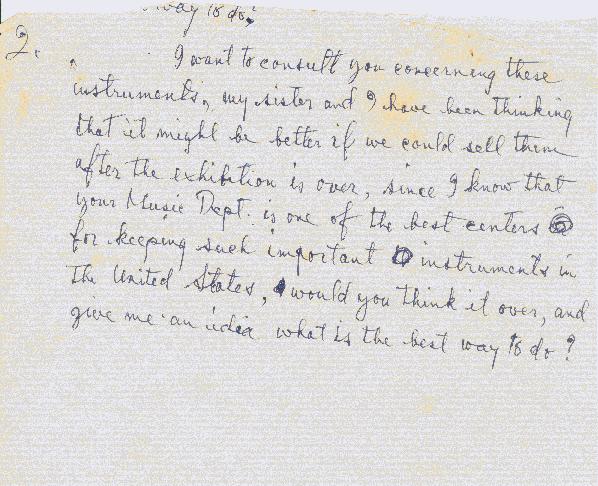 way to do?
2.
I want to consult you concerning these
instruments, my sister and I have been thinking
that it might be better if we could sell them
after the exhibition is over, since I know that
your Music Dept. is one of the best centers
for keeping such important instruments in
the United States, would you think it over, and
give me an idia what is the best way to do?